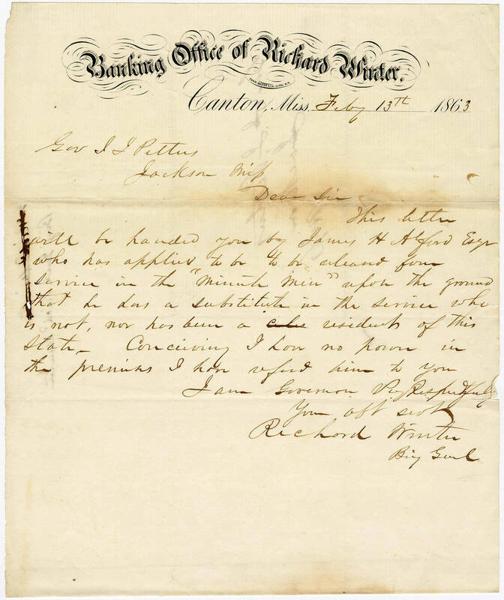 Banking Office of Richard Winter.
Canton, Miss. Feby 13th 1863
Gov J J Pettus
Jackson Miss
Dear Sir
This letter
will be handed you by James H Alford Esqr
who has applied to be released from
service in the "Minute Men" upon the ground
that he has a substitute in the service who
is not, nor has been a residents of this
State_ Conceiving I have no power in
the premises I have referd him to you
I am Governor Vy Respectfully
Your obt servt
Richard Winter
Brig Genl